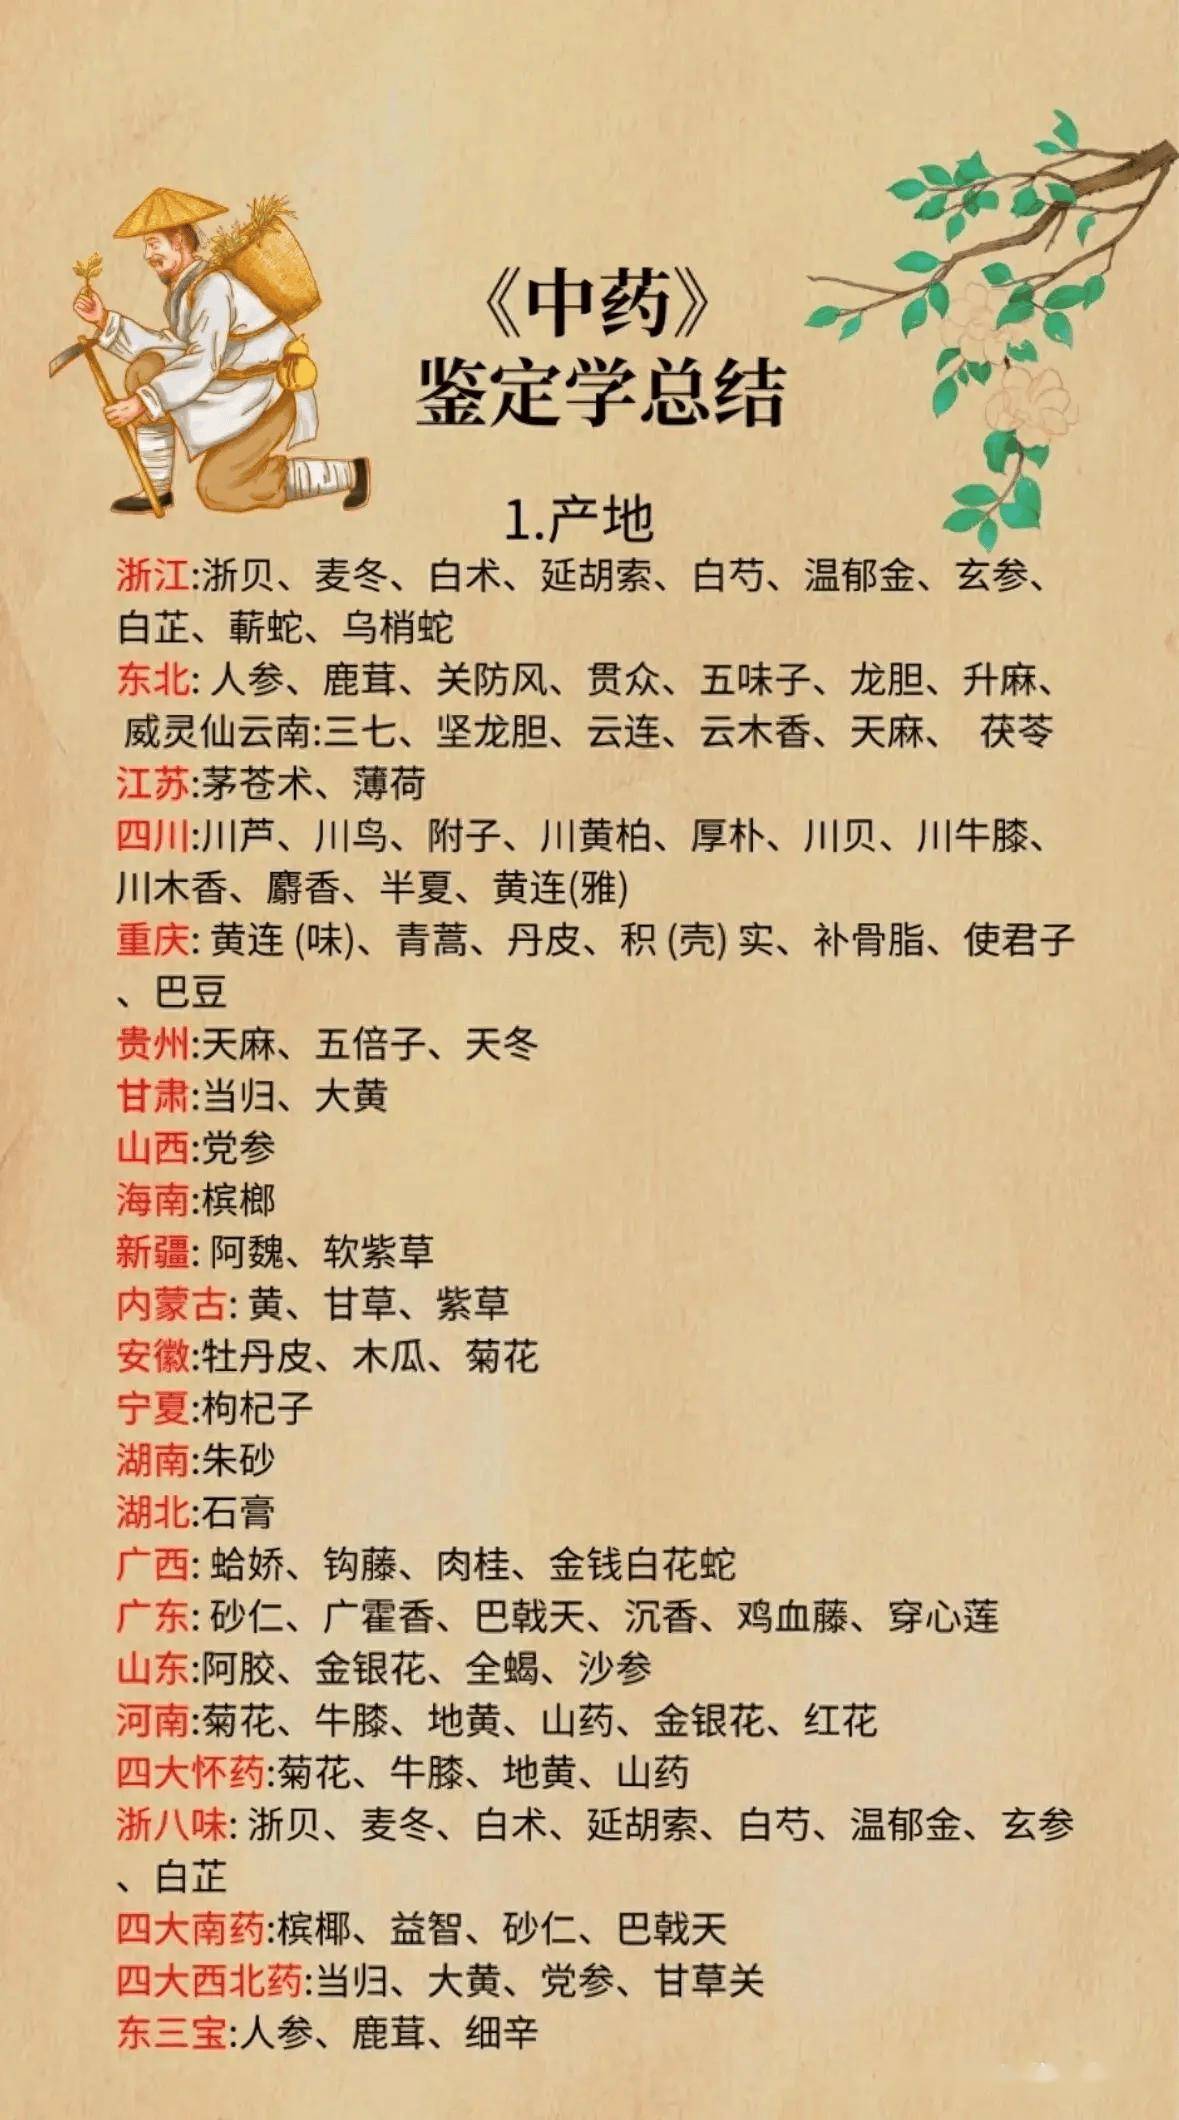 《中药》
鉴定学总结
1.产地
浙江:浙贝、麦冬、白术、延胡索、白芍、温郁金、玄参、
白芷、蕲蛇、乌梢蛇
东北: 人参、鹿茸、关防风、贯众、五味子、龙胆、升麻、
威灵仙云南:三七、坚龙胆、云连、云木香、天麻、 茯苓
江苏:茅苍术、薄荷
四川:川芦、川鸟、附子、川黄柏、厚朴、川贝、川牛膝、
川木香、麝香、半夏、黄连(雅)
重庆: 黄连 (味)、青蒿、丹皮、积 (壳) 实、补骨脂、使君子
、巴豆
贵州:天麻、五倍子、天冬
甘肃:当归、大黄
山西:党参
海南:槟榔
新疆: 阿魏、软紫草
内蒙古: 黄、甘草、紫草
安徽:牡丹皮、木瓜、菊花
宁夏:枸杞子
湖南:朱砂
湖北:石膏
广西: 蛤娇、钩藤、肉桂、金钱白花蛇
广东: 砂仁、广霍香、巴戟天、沉香、鸡血藤、穿心莲
山东:阿胶、金银花、全蝎、沙参
河南:菊花、牛膝、地黄、山药、金银花、红花
四大怀药:菊花、牛膝、地黄、山药
浙八味: 浙贝、麦冬、白术、延胡索、白芍、温郁金、玄参
、白芷
四大南药:槟椰、益智、砂仁、巴戟天
四大西北药:当归、大黄、党参、甘草关
东三宝:人参、鹿茸、细辛